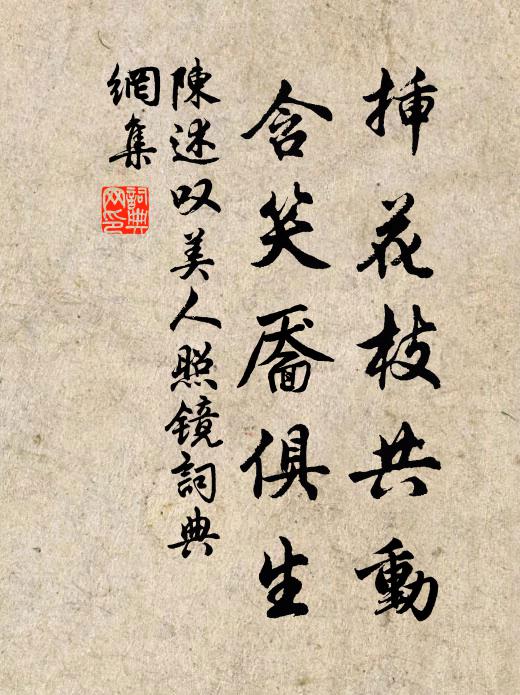 挿花枝共動
含笑靨俱生
陳述叹美人照镜詞典
網集
詞典網印